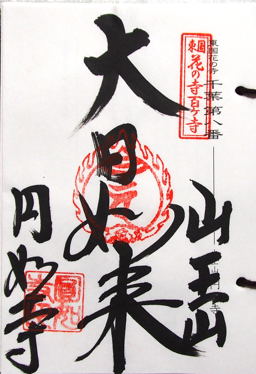 東国花の寺 千葉第八番
東国
花の寺百ヶ寺
山王山
大日如来
円如寺